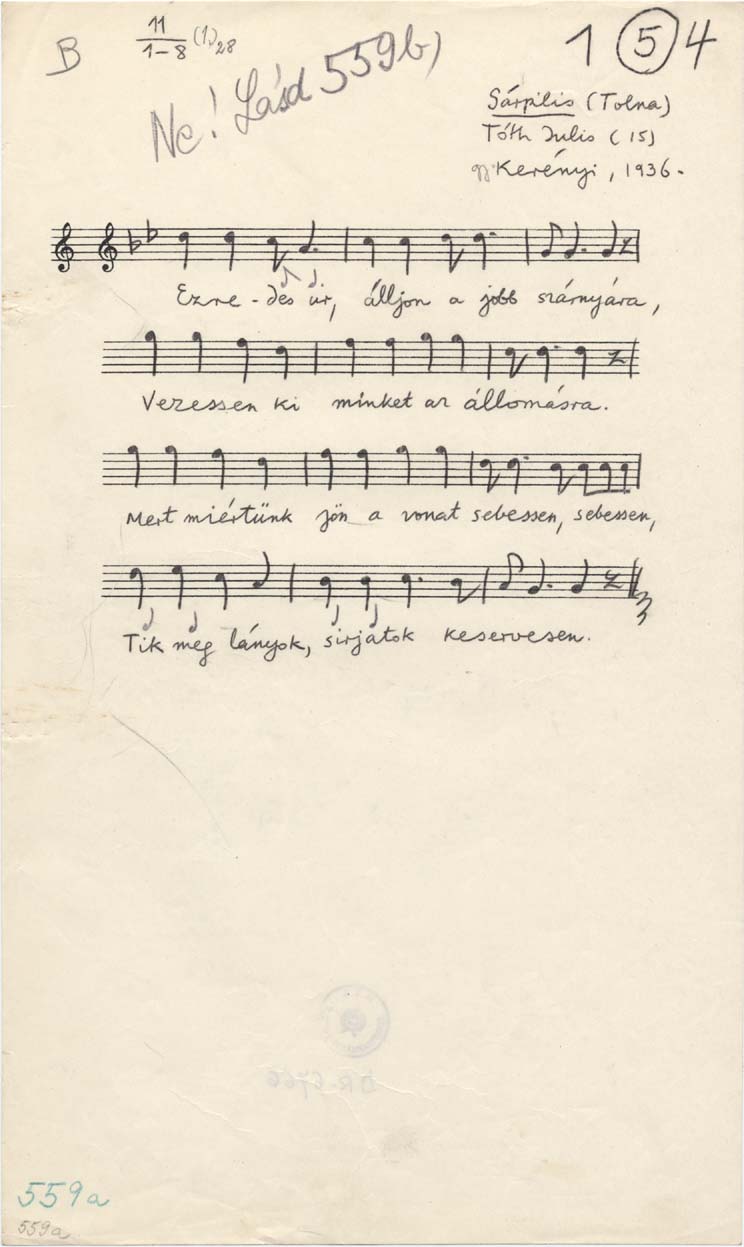 B 11/1-8 (1)28
1 5 4
Ne! Lásd 559b)
Sárpilis (Tolna)
Tóth Julis (15)
gy. Kerényi, 1936.
Ezre-des úr, álljon a jobb szárnyára,
Vezessen ki minket az állomásra.
Mert miértünk jön a vonat sebessen, sebessen,
Tik meg lányok, sirjatok keservesen.
DR-6766
559a
559a